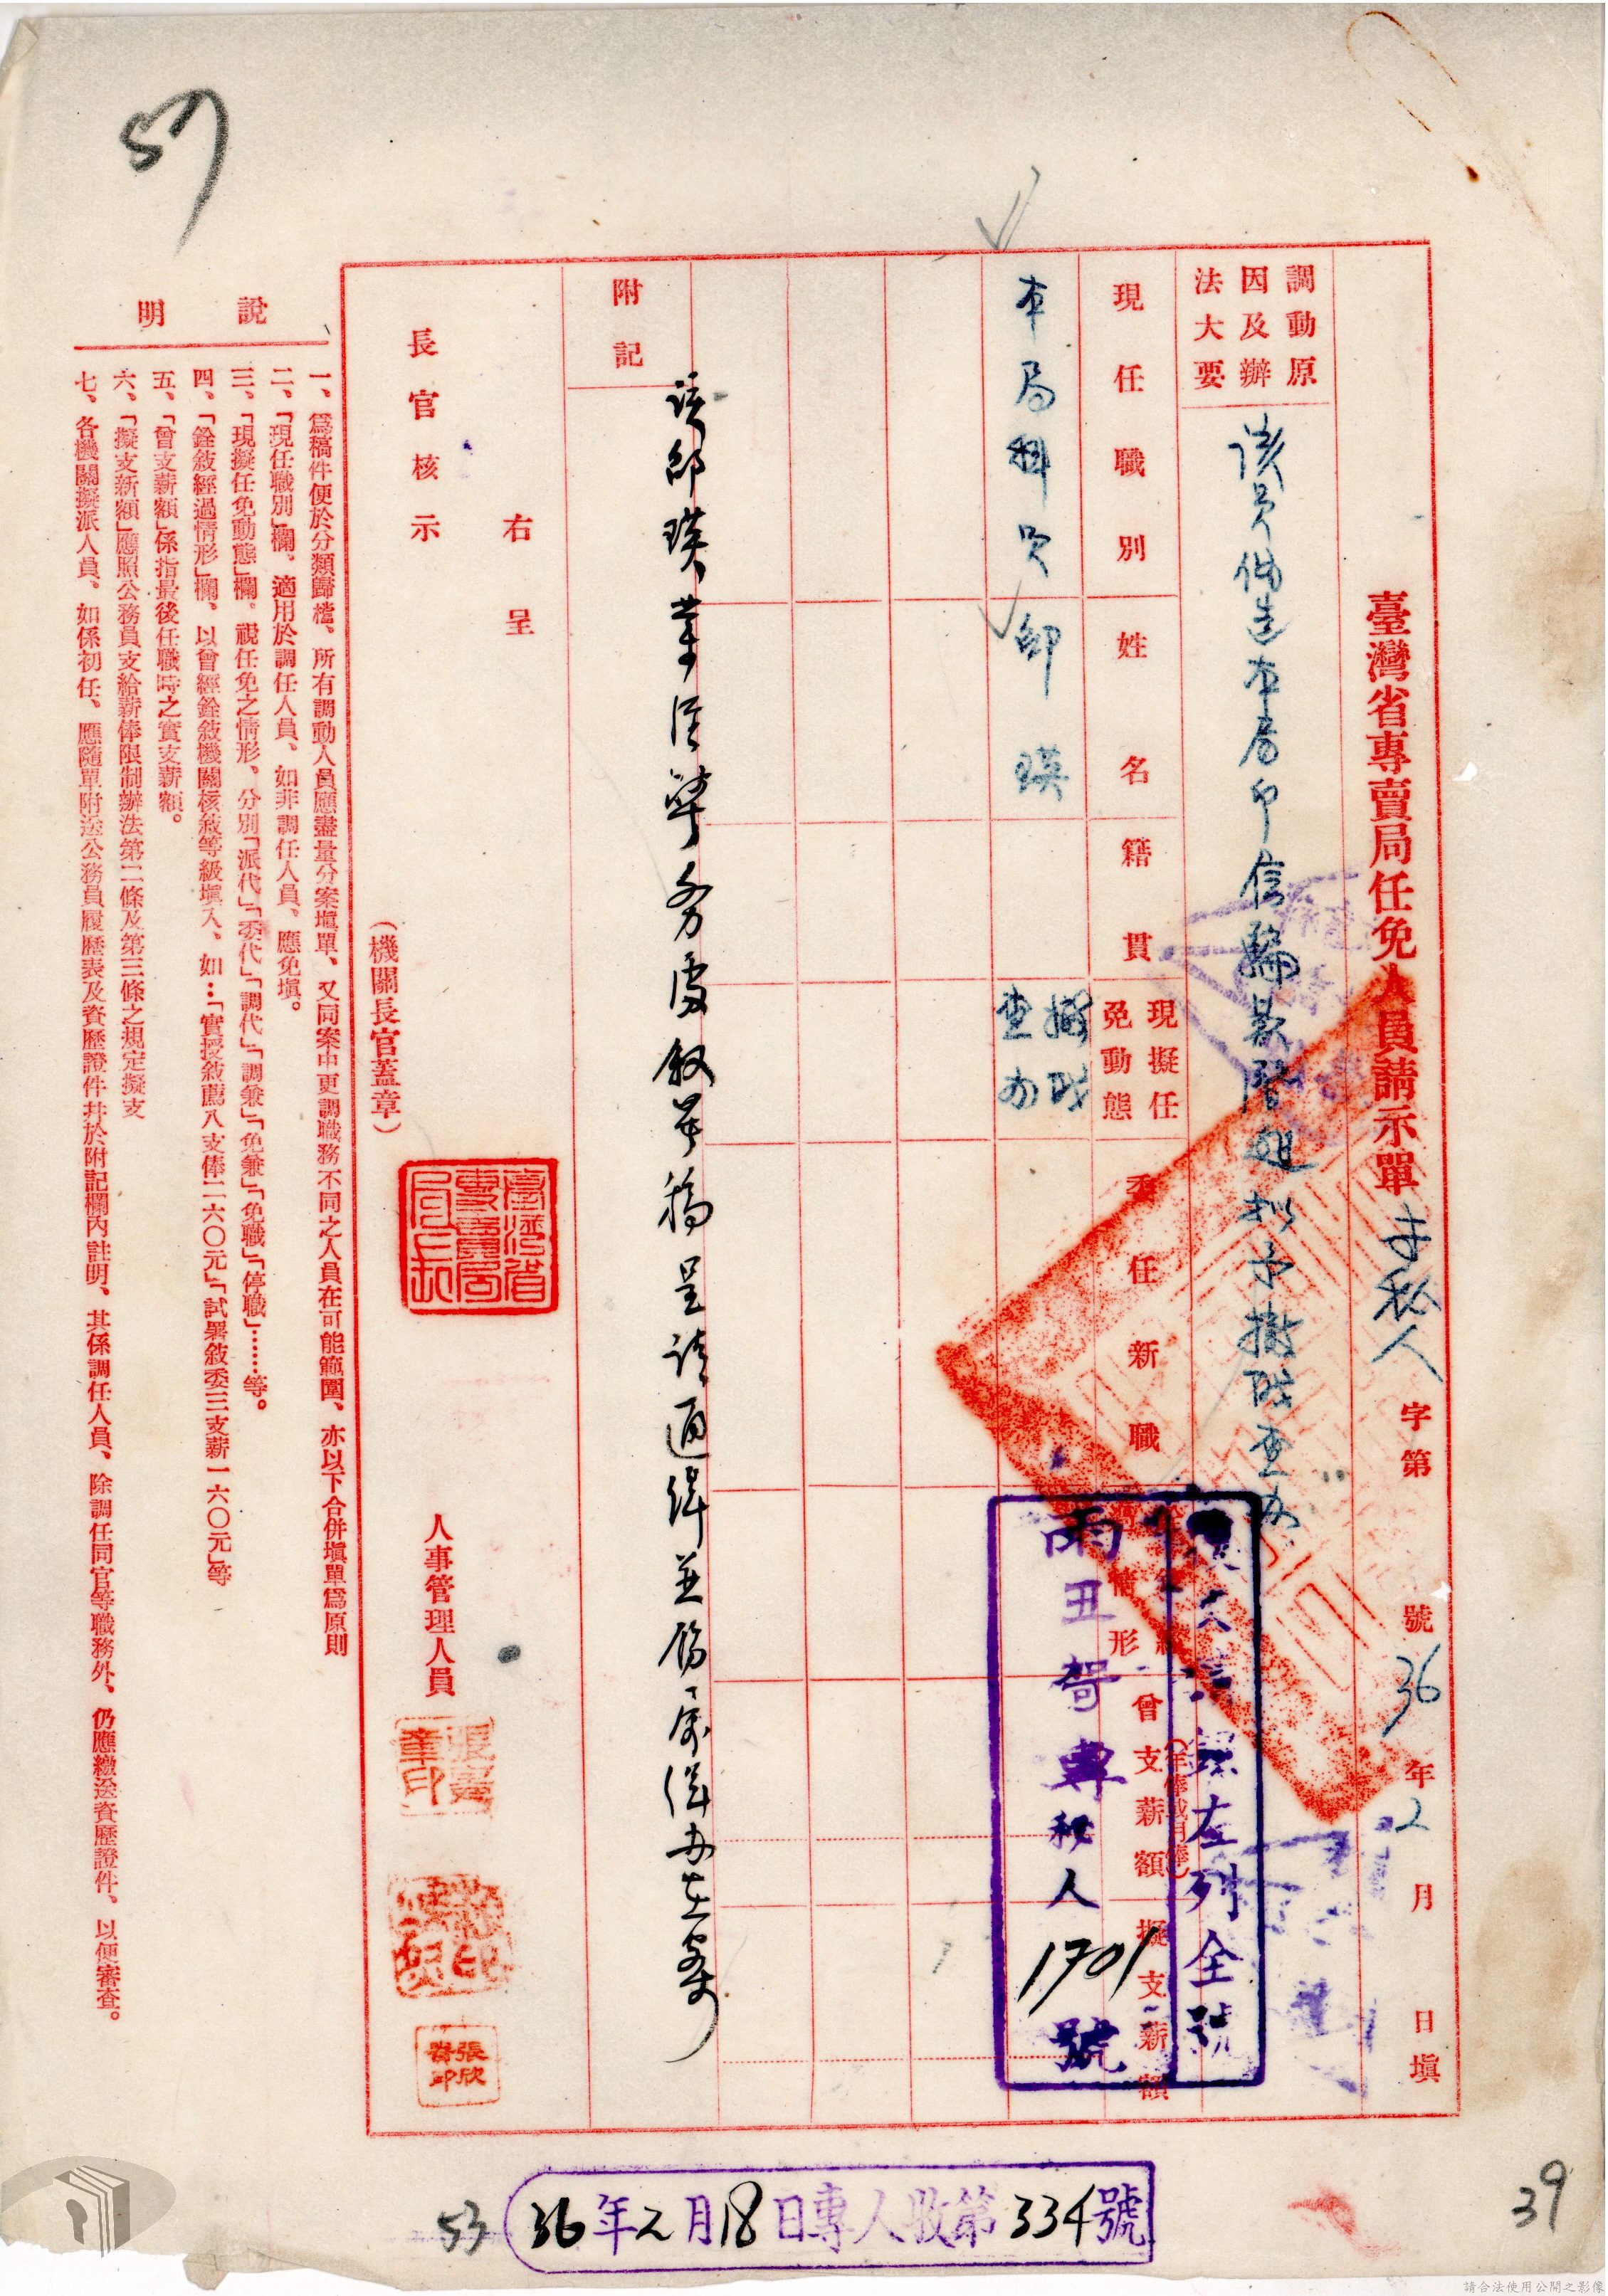 57
臺灣省專賣局任免人員請示單 專秘人 字第 號 36年2月 日填
調動原
因及辦
法大要
該員偽造本局印信騙款潛逃擬予撤職查办
現任職別 姓名 籍貫 現擬任免動態 委任新職 曾支薪額 擬支薪額
本局科員 邱瑛 撤職查办
左列全號
丑 專秘人1701號
附記
該邱瑛業經 務處敘具稿呈請通緝並飭屬緝办在案
右呈
長官核示
(機關長官蓋章)
臺灣省專賣局局長
人事管理人員
說明
一、為稿件便於分類歸檔、所有調動人員應盡量分案塡單、又同案中更調職務不同之人員在可能範圍、亦以下合併塡單爲原則
二、「現任職別」欄、適用於調任人員、如非調任人員、應免塡。
三、「現擬任免動態」欄、視任免之情形、分別「派代」「委代」「調代」「調兼」「免兼」「免職」「停職」……等。
四、「銓敘經過情形」欄、以曾經銓敘機關核敘等級塡入、如…「實授敘薦八支俸二六〇元」「試署敘委三支薪一六〇元」等
五、「曾支薪額」係指最後任職時之實支薪額。
六、「擬支新額」應照公務員支給薪俸限制辦法第二條及第三條之規定擬支
七、各機關擬派人員、如係初任、應隨單附送公務員履歷表及資歷證件并於附記欄內註明、其係調任人員、除調任同官等職務外、仍應繳送資歷證件、以便審查。
53
36年2月18日專人收第334號
39
請合法使用公開之影像